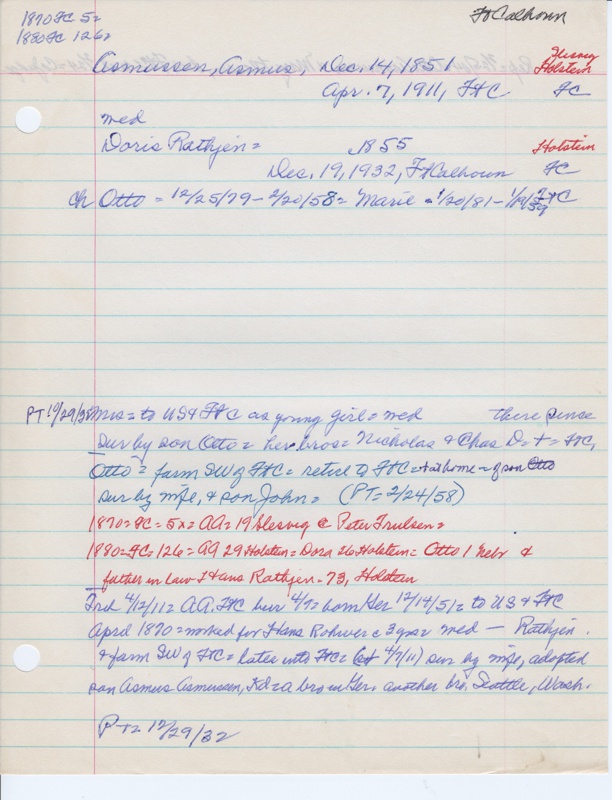 1870 FC 5=
1880 FC 126=
Ft Calhoun
Asmussen, Asmus, Dec. 14, 1851
Holstein
Apr. 7, 1911, FtC FC
med
Doris Rathjen = 1855 Holstein
Dec. 19, 1932, Ft Calhoun FC
ch Otto = 12/25/79 - 2/20/58 = Marie = 1/20/81 - 1/19/59 FtC
PT 12/29/32 Mrs = to US & FtC as young girl = med there since
Sur by son Otto = her bros = Nicholas & Chas D. + = FtC,
Otto = farm SW of FtC = retire to FtC = + at home = of son Otto
sur by wife, & son John = (PT = 2/24/58)
1870 = FC = 5 x = AA = 19 Slesvig @ Peter Frulsen =
1880 = FC = 126 = AA 29 Holstein = Dora 26 Holstein = Otto 1 Nebr &
father in law Hans Rathjen - 73, Holstein
Frd 4/12/11 = AA, FtC bur 4/9 = born Ger 12/14/51 = to US & FtC
April 1870 = worked for Hans Rohwer c 3 yrs = med — Rathjen.
& farm SW of FtC = later into FtC = (4/7/11) sur by wife, adopted
son Asmus Asmussen, Kd = a bro in Ger, another bro, Seattle, Wash.
PT = 12/29/32